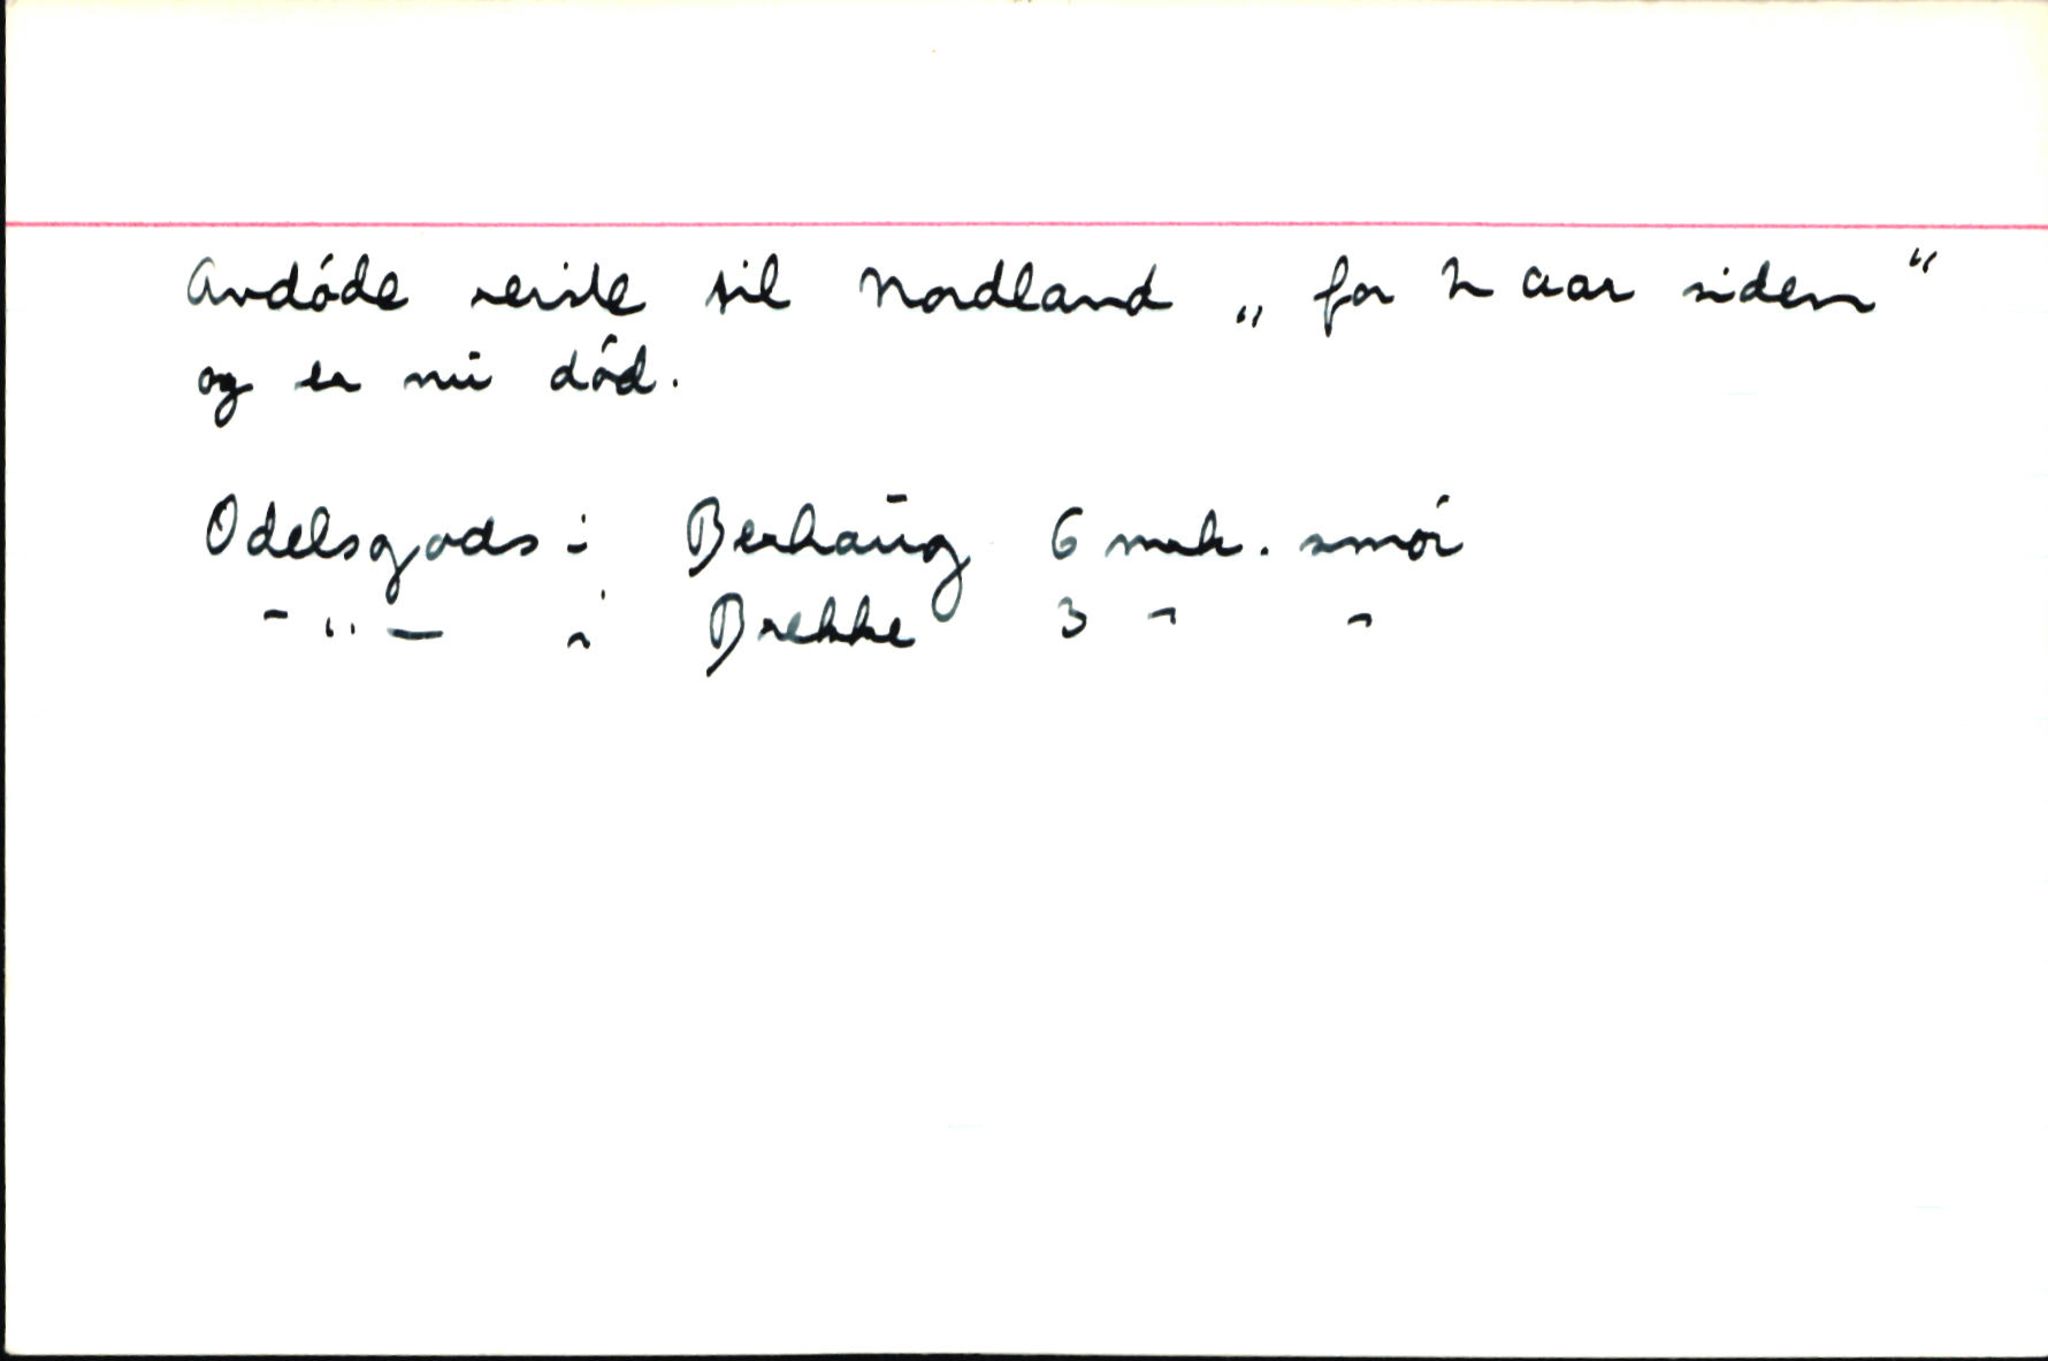 Avdöde reiste til Nordland „for 2 aar siden“
og er nu död.
Odelsgods i Berhaug 6 mrk. smör
-"- i Brekke 3 " "